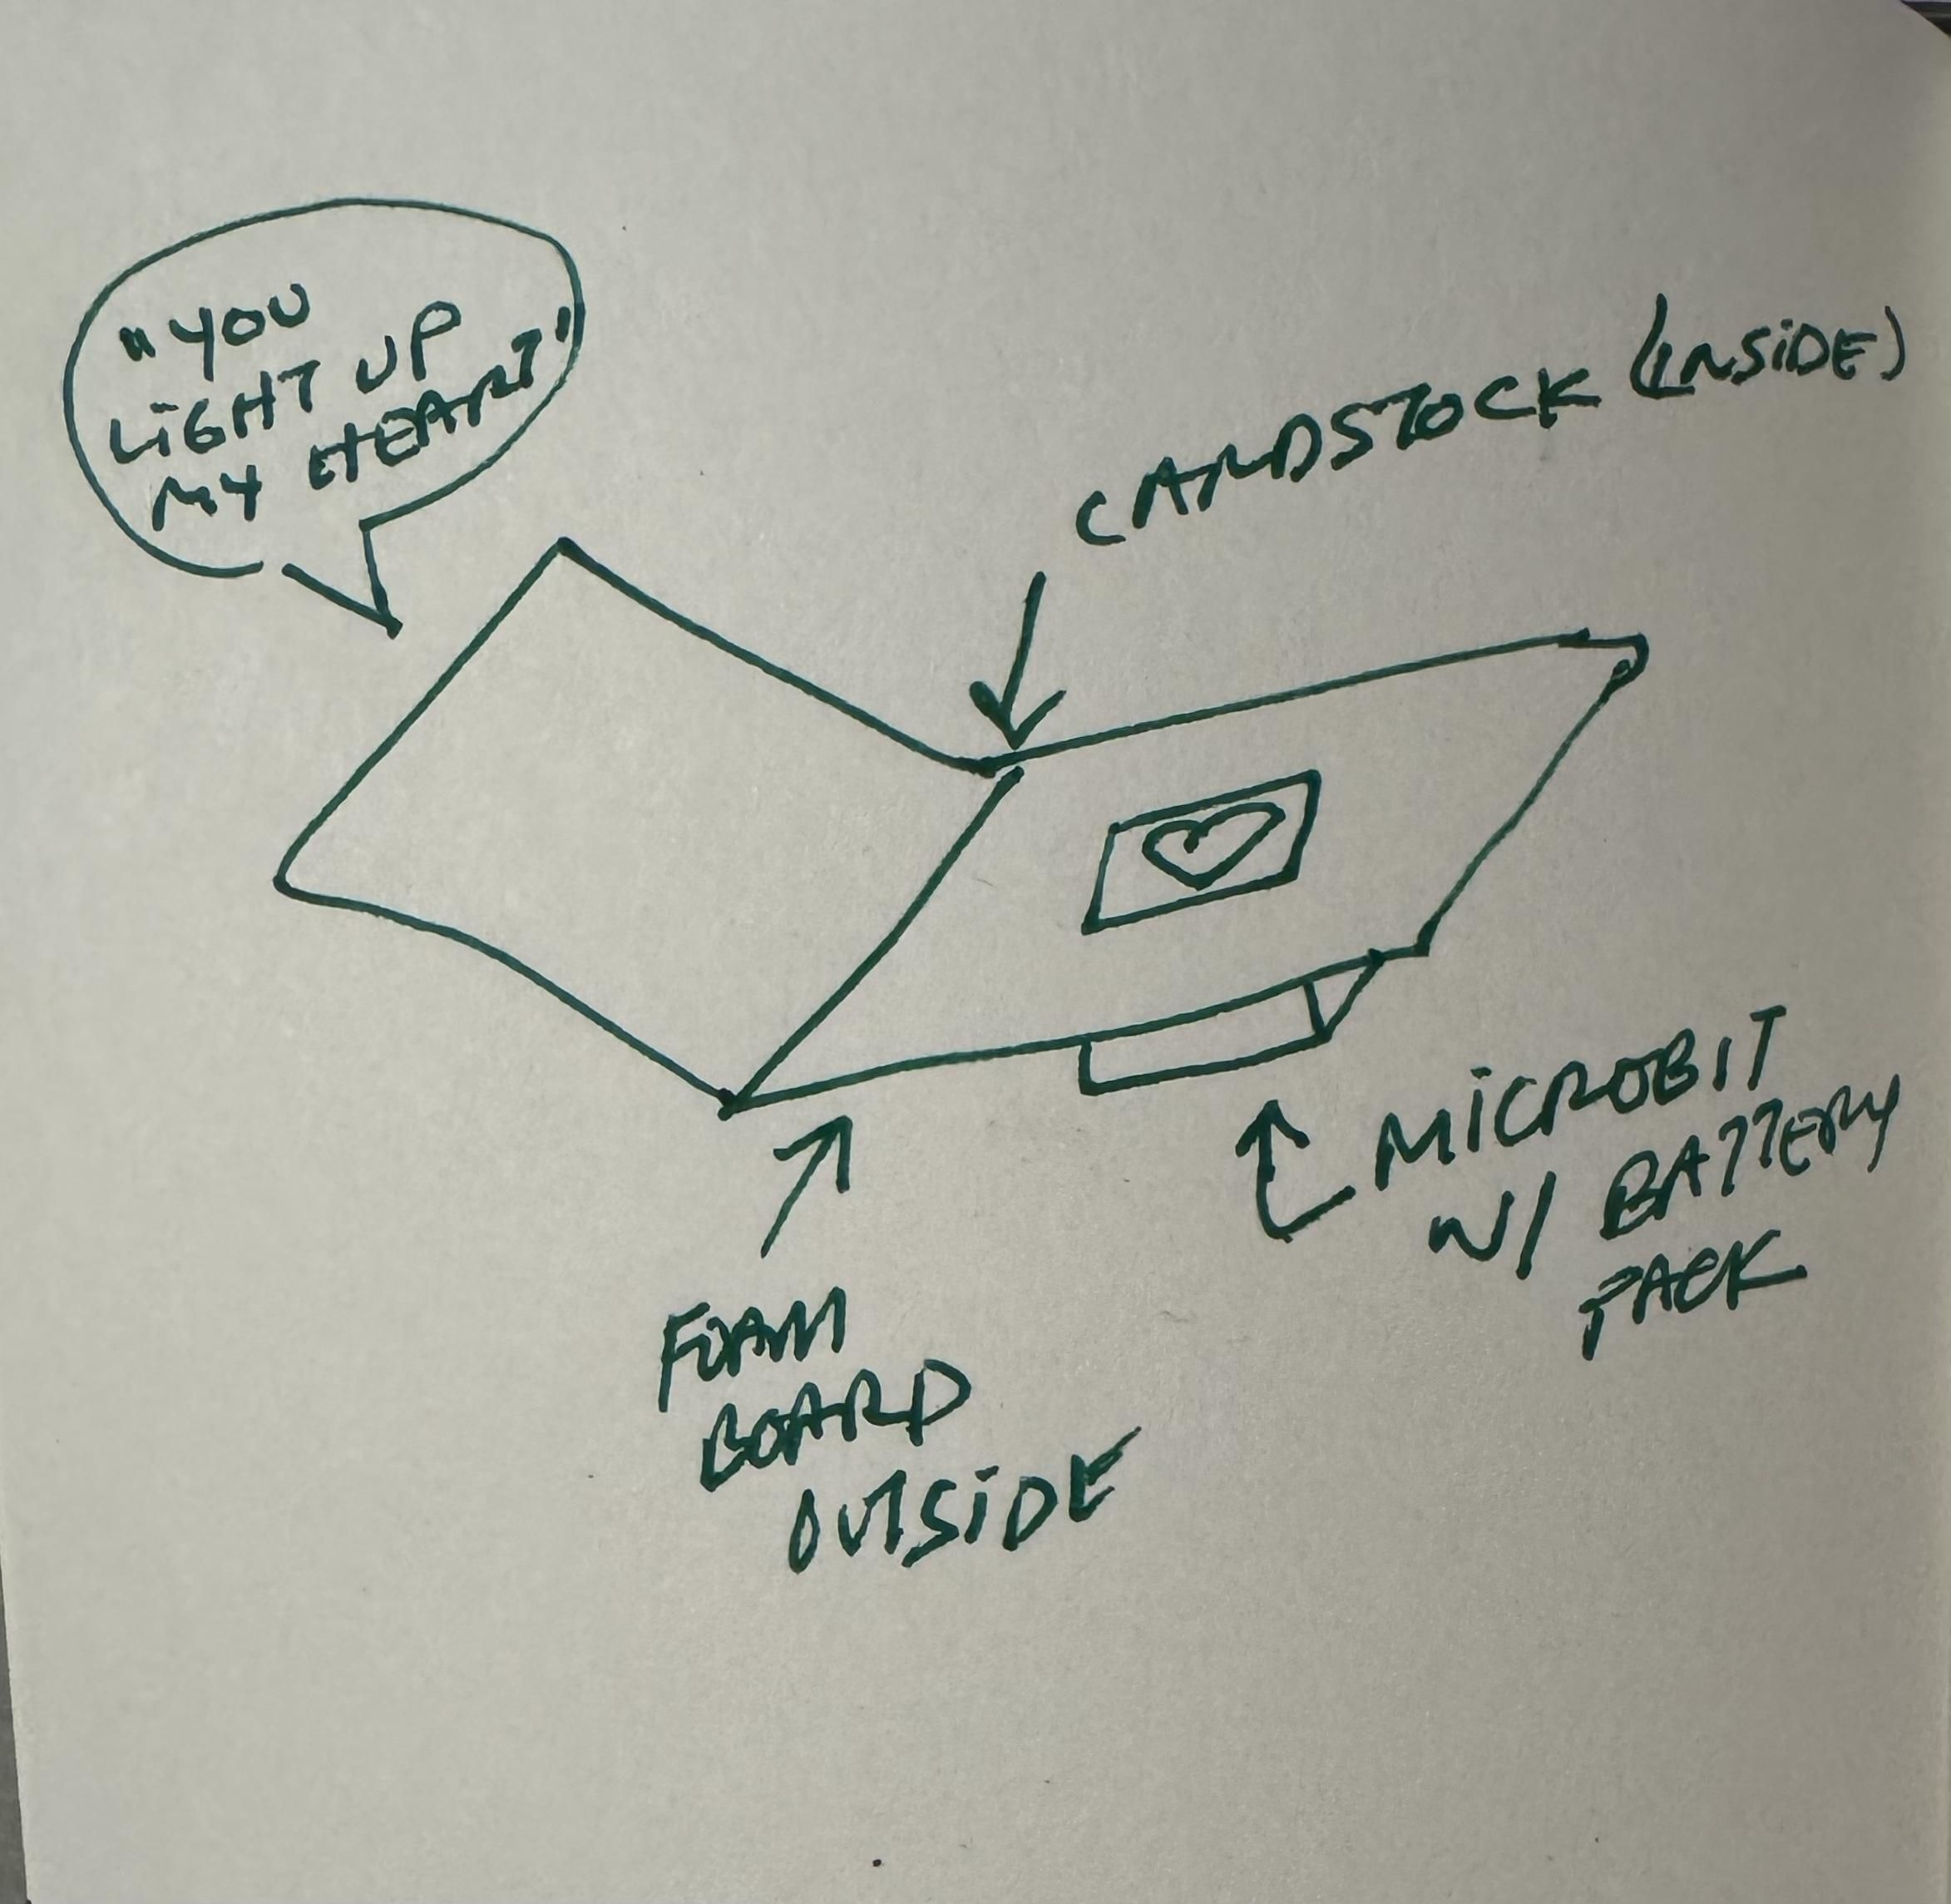 "YOU
LIGHT UP
MY HEART"
CARDSTOCK (INSIDE)
MICROBIT
W/ BATTERY
PACK
FOAM
BOARD
OUTSIDE